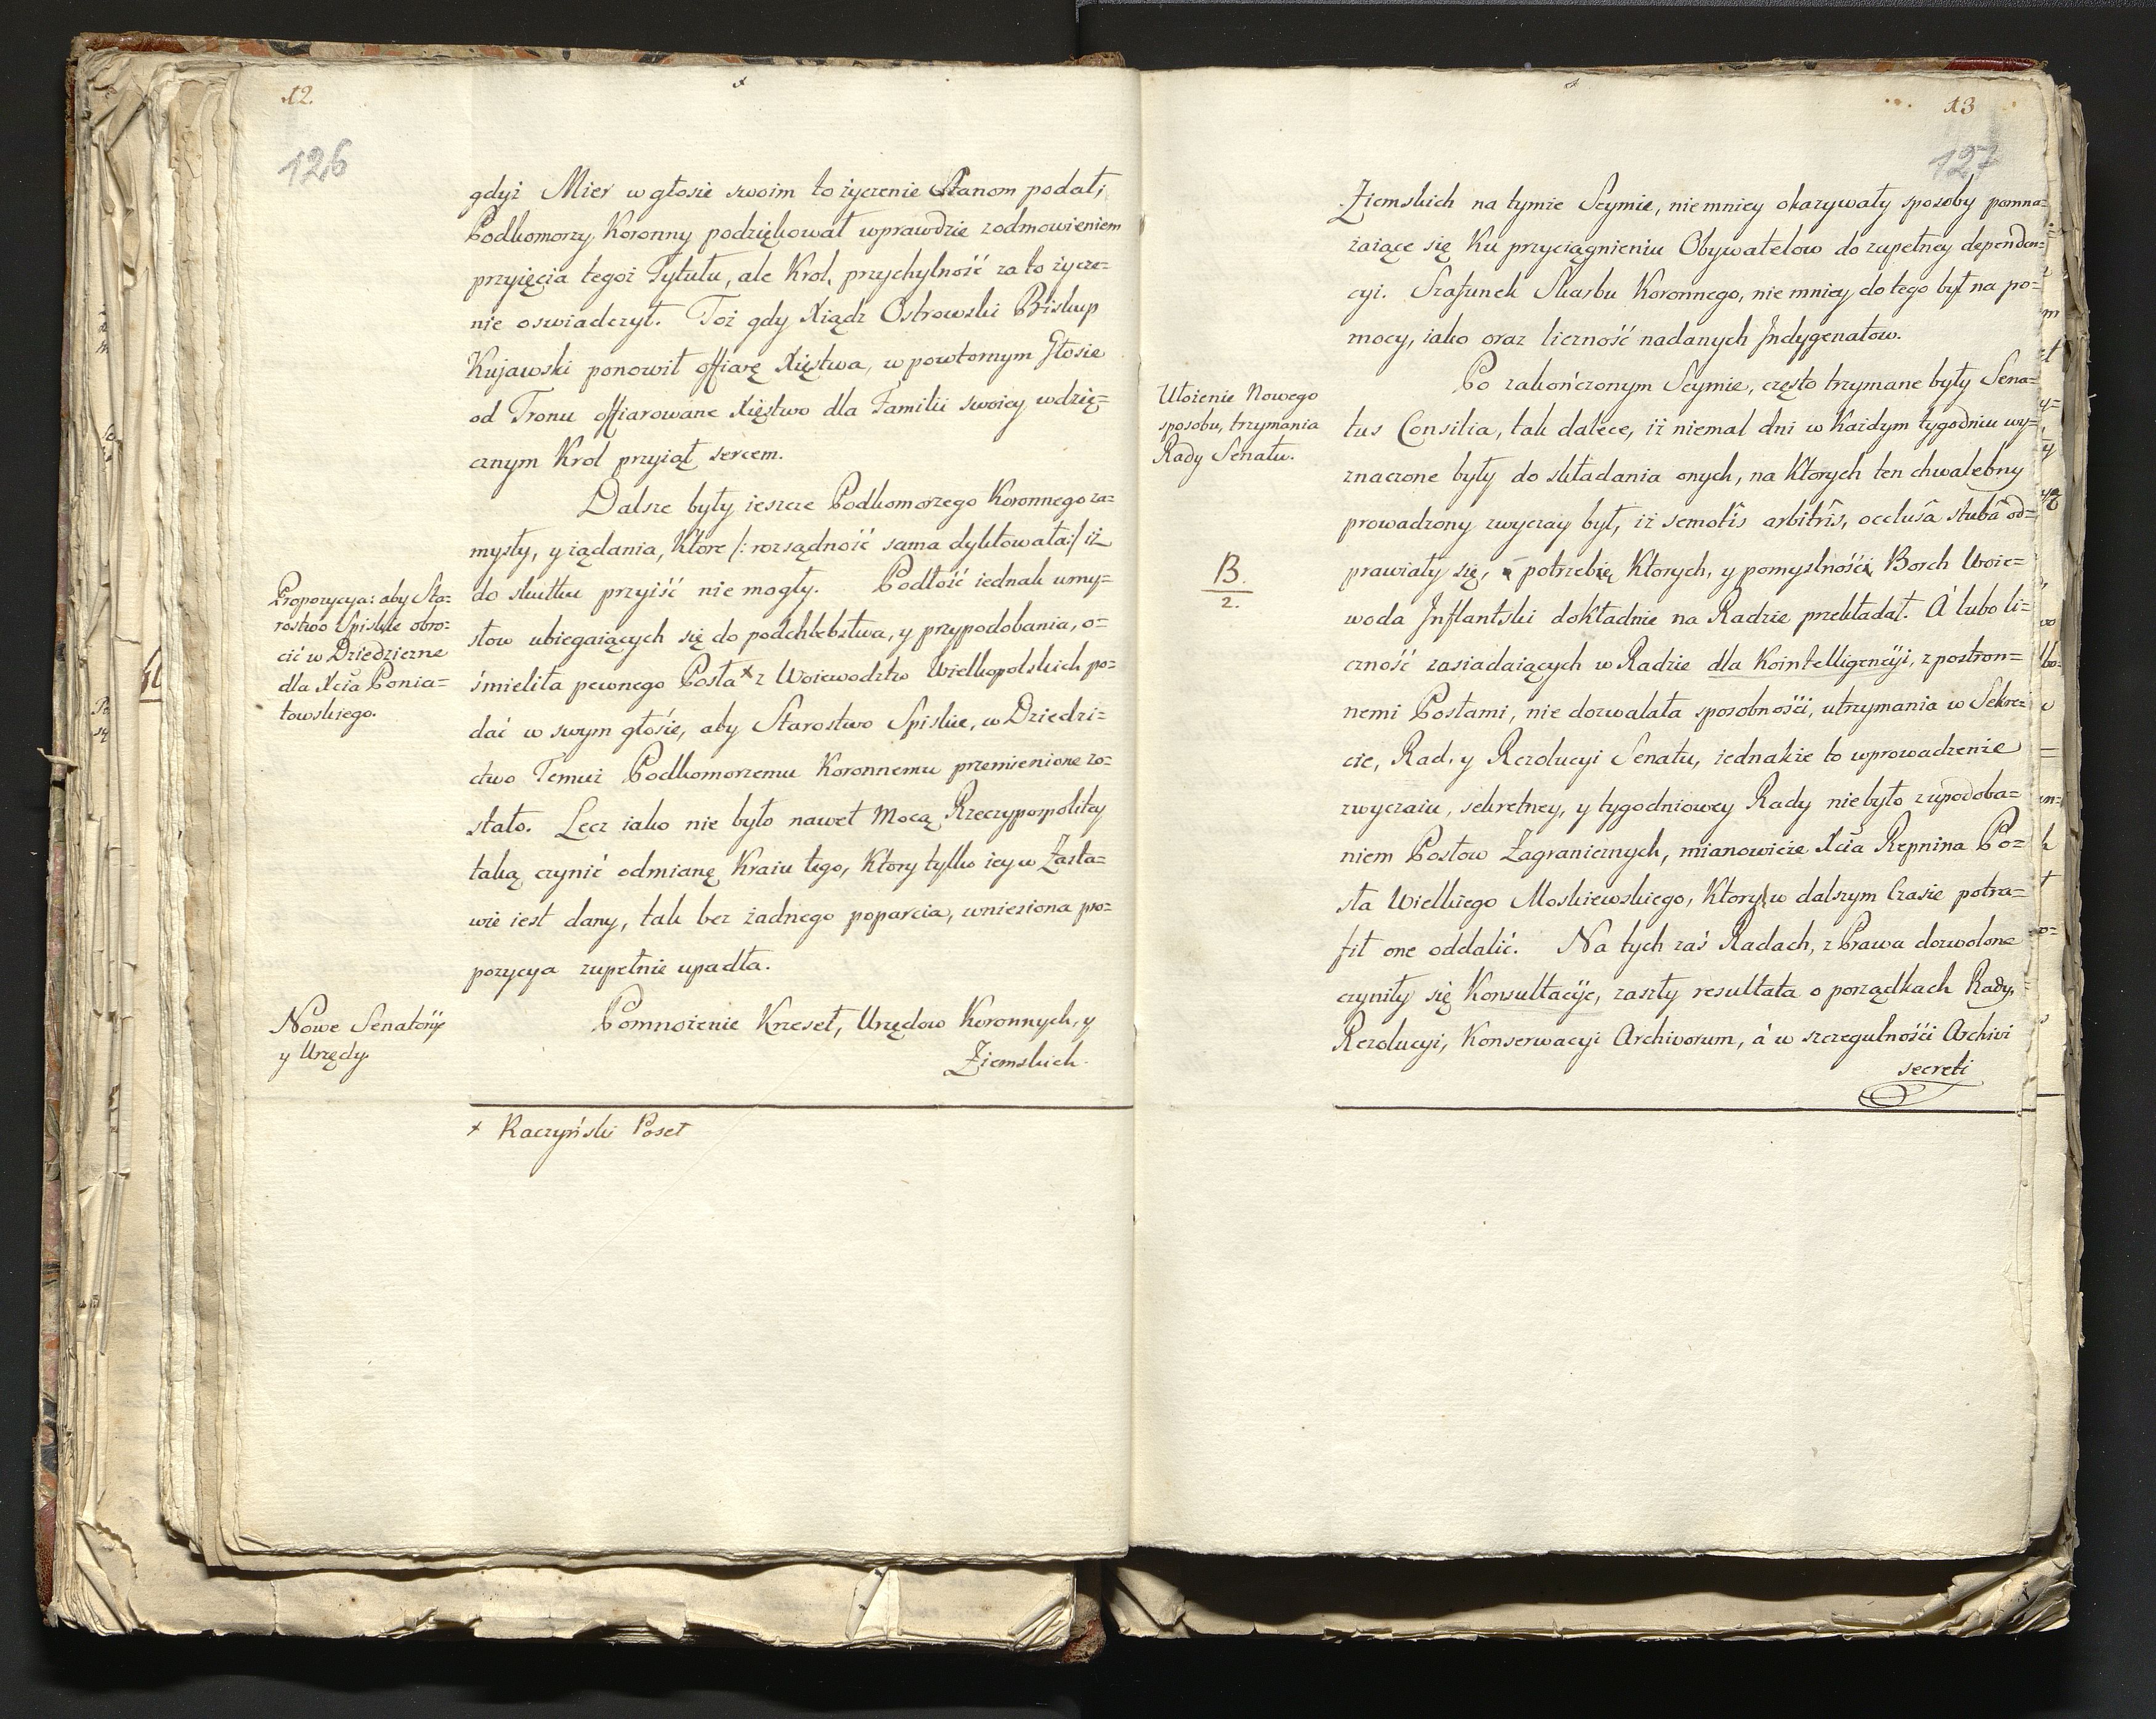 12.
126
gdyż Mier w głosie swoim to życzenie Stanom podał,
Podkomorzy Koronny podziękował wprawdzie zodmowieniem
przyięcia tegoż Tytułu, ale Krol, przychylność za to życze=
nie oswiadczył. Toż gdy Xiądz Ostrowski Biskup
Kujawski ponowił offiarę Xięstwa, w powtornym Głosie
od Tronu offiarowane Xięstwo dla Familii swoiey wdzię=
cznym Krol przyiął sercem.
Dalsze były ieszcze Podkomorzego Koronnego za=
mysły, y żądania, Ktore /: rozsądność sama dyktowała :/ iż
do skutku przyiść nie mogły. Podłość iednak umy=
słow ubiegaiących się do podchlebstwa, y przypodobania, o=
śmieliła pewnego Posła x z Woiewodztw Wielkopolskich po=
dać w swym głośie, aby Starostwo Spiskie, w Dziedzi=
ctwo Temuż Podkomorzemu Koronnemu przemienione zo=
stało. Lecz iako nie było nawet Mocą Rzeczypospolitey
taką czynić odmianę Kraiu tego, Ktory tylko iey w Zasta=
wie iest dany, tak bez żadnego poparcia, wniesiona pro=
pozycya zupełnie upadła.
Pomnożenie Krzeseł, Urzędow Koronnych, y
Ziemskich
Propozycya: aby Sta=
rostwo Spiskie obro=
cić w Dziedziczne
dla Xcia Ponia=
towskiego.
Nowe Senatoryje
y Urzędy.
x Raczyński Poseł
13
127
Ziemskich na tymże Seymie, niemniey okazywały sposoby pomna=
żaiące się Ku przyciągnieniu Obywatelow do zupełney dependen=
cyi. Szafunek Skarbu Koronnego, nie mniey do tego był na po=
mocy, iako oraz liczność nadanych Indygenatow.
Po zakończonym Seymie, często trzymane były Sena=
tus Consilia, tak dalece, iż niemal dni w Każdym tygodniu wy=
znaczone były do składania onych, na Ktorych ten chwalebny
prowadzony zwyczay był, iż semotîs arbitrîs, occlusâ stubâ od=
prawiały się, potrzebię Ktorych, y pomyslnośći Borch Woie=
woda Inflantski dokładnie na Radzie przekładał. A lubo li=
czność zasiadaiących w Radzie dla Kointelligencyi, z postron=
nemi Posłami, nie dozwalała sposobnośći, utrzymania w Sekre=
cie, Rad, y Rezolucyi Senatu, iednakże to wprowadzenie
zwyczaiu, sekretney, y tygodniowey Rady niebyło z upodoba=
niem Posłow Zagranicznych, mianowicie Xcia Repnina Po=
sła Wielkiego Moskiewskiego, Ktory w dalszym Czasie potra=
fił one oddalić. Na tych zaś Radach, z Prawa dozwolone
czyniły się Konsultacyje, zaszły resultata o porządkach Rady,
Rezolucyi, Konserwacyi Archivorum, á w szczegulnośći Archivi
secreti
Ułożenie Nowego
sposobu, trzymania
Rady Senatu.
B.
2.